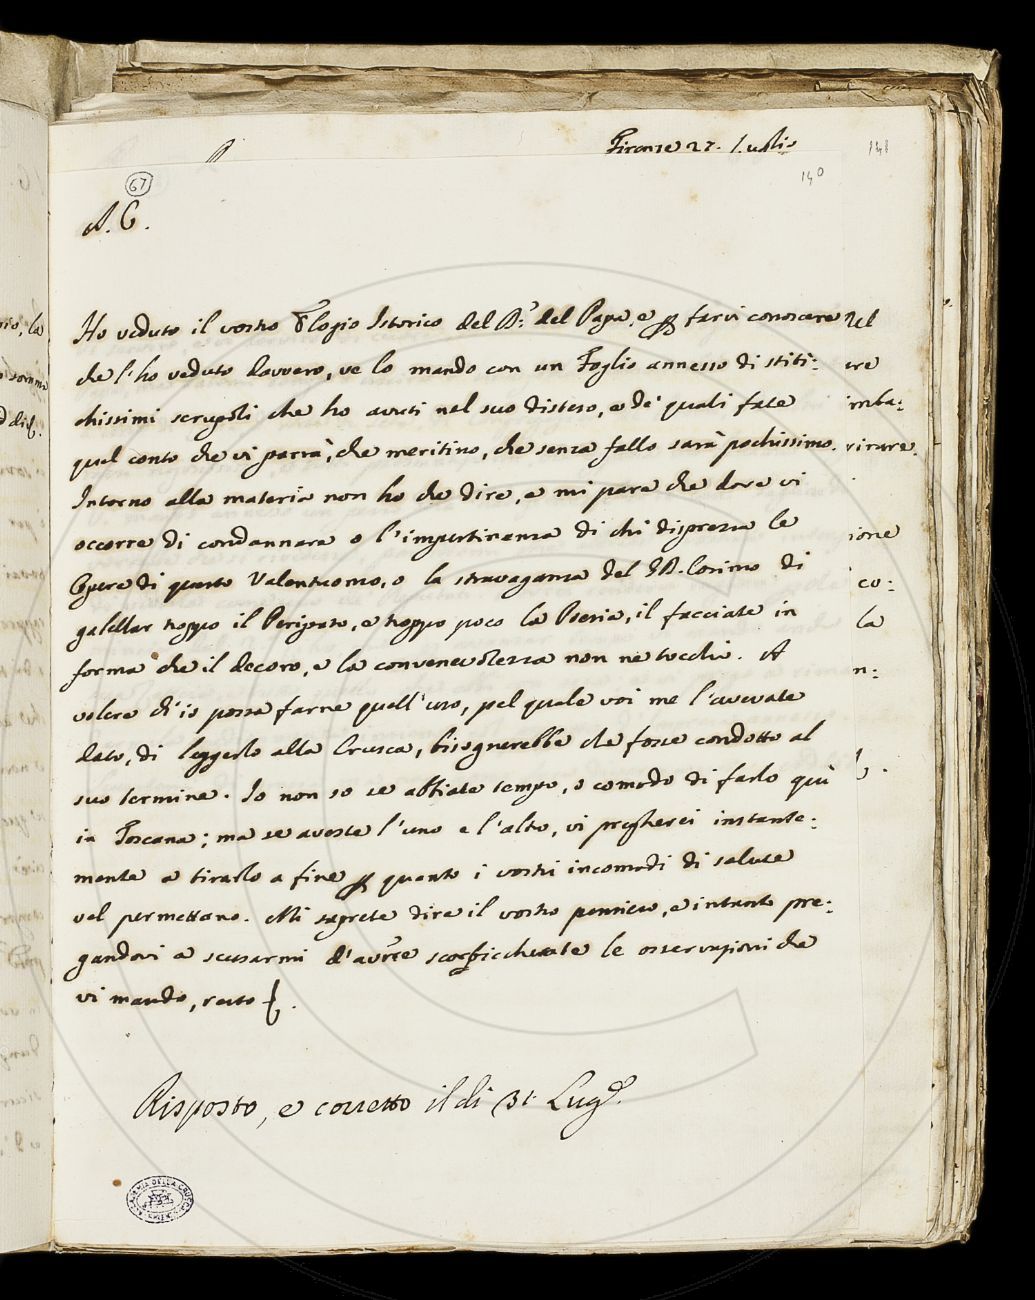 Firenze 27. Luglio
148
140
67
A. C.
Ho veduto il vostro Elogio Istorico del B.e del Papa, e p farvi conoscere
che l'ho veduto davvero, ve lo mando con un Foglio annesso di stiti:
chissimi scrupoli che ho avuti nel suo disteso, e de' quali fate
quel conto che vi parrà, che meritino, che senza fallo sarà pochissimo.
Intorno alla materia non ho che dire, e mi pare che dove vi
occorre di condannare o l'impertinenza di chi disprezza le
Opere di questo Valentuomo, o la stravaganza del Cosimo di
troppo il Peripato, e troppo poco la Poesia, il facciate in
forma che il decoro, e la convenevolezza non ne tocchi. A
volere ch'io possa farne quell'uso, pel quale voi me l'avevate
dato, di leggerlo alla Crusca, bisognerebbe che fosse condotto al
suo termine. Io non so se abbiate tempo, o comodo di farlo quì
in Toscana; ma se aveste l'uno e l'altro, vi pregherei instante:
mente a tirarlo a fine p quanto i vostri incomodi di salute
vel permettano. Mi saprete dire il vostro pensiero, e intanto pre:
gandovi a scusarmi d'avere scorbiccherate le osservazioni che
vi mando, resto
Risposto, e corretto il di 31. Lug.o
nel
ere
imba:
rirare.
ione
co:
la
n:
ACCADEMIA DELLA CRUSCA